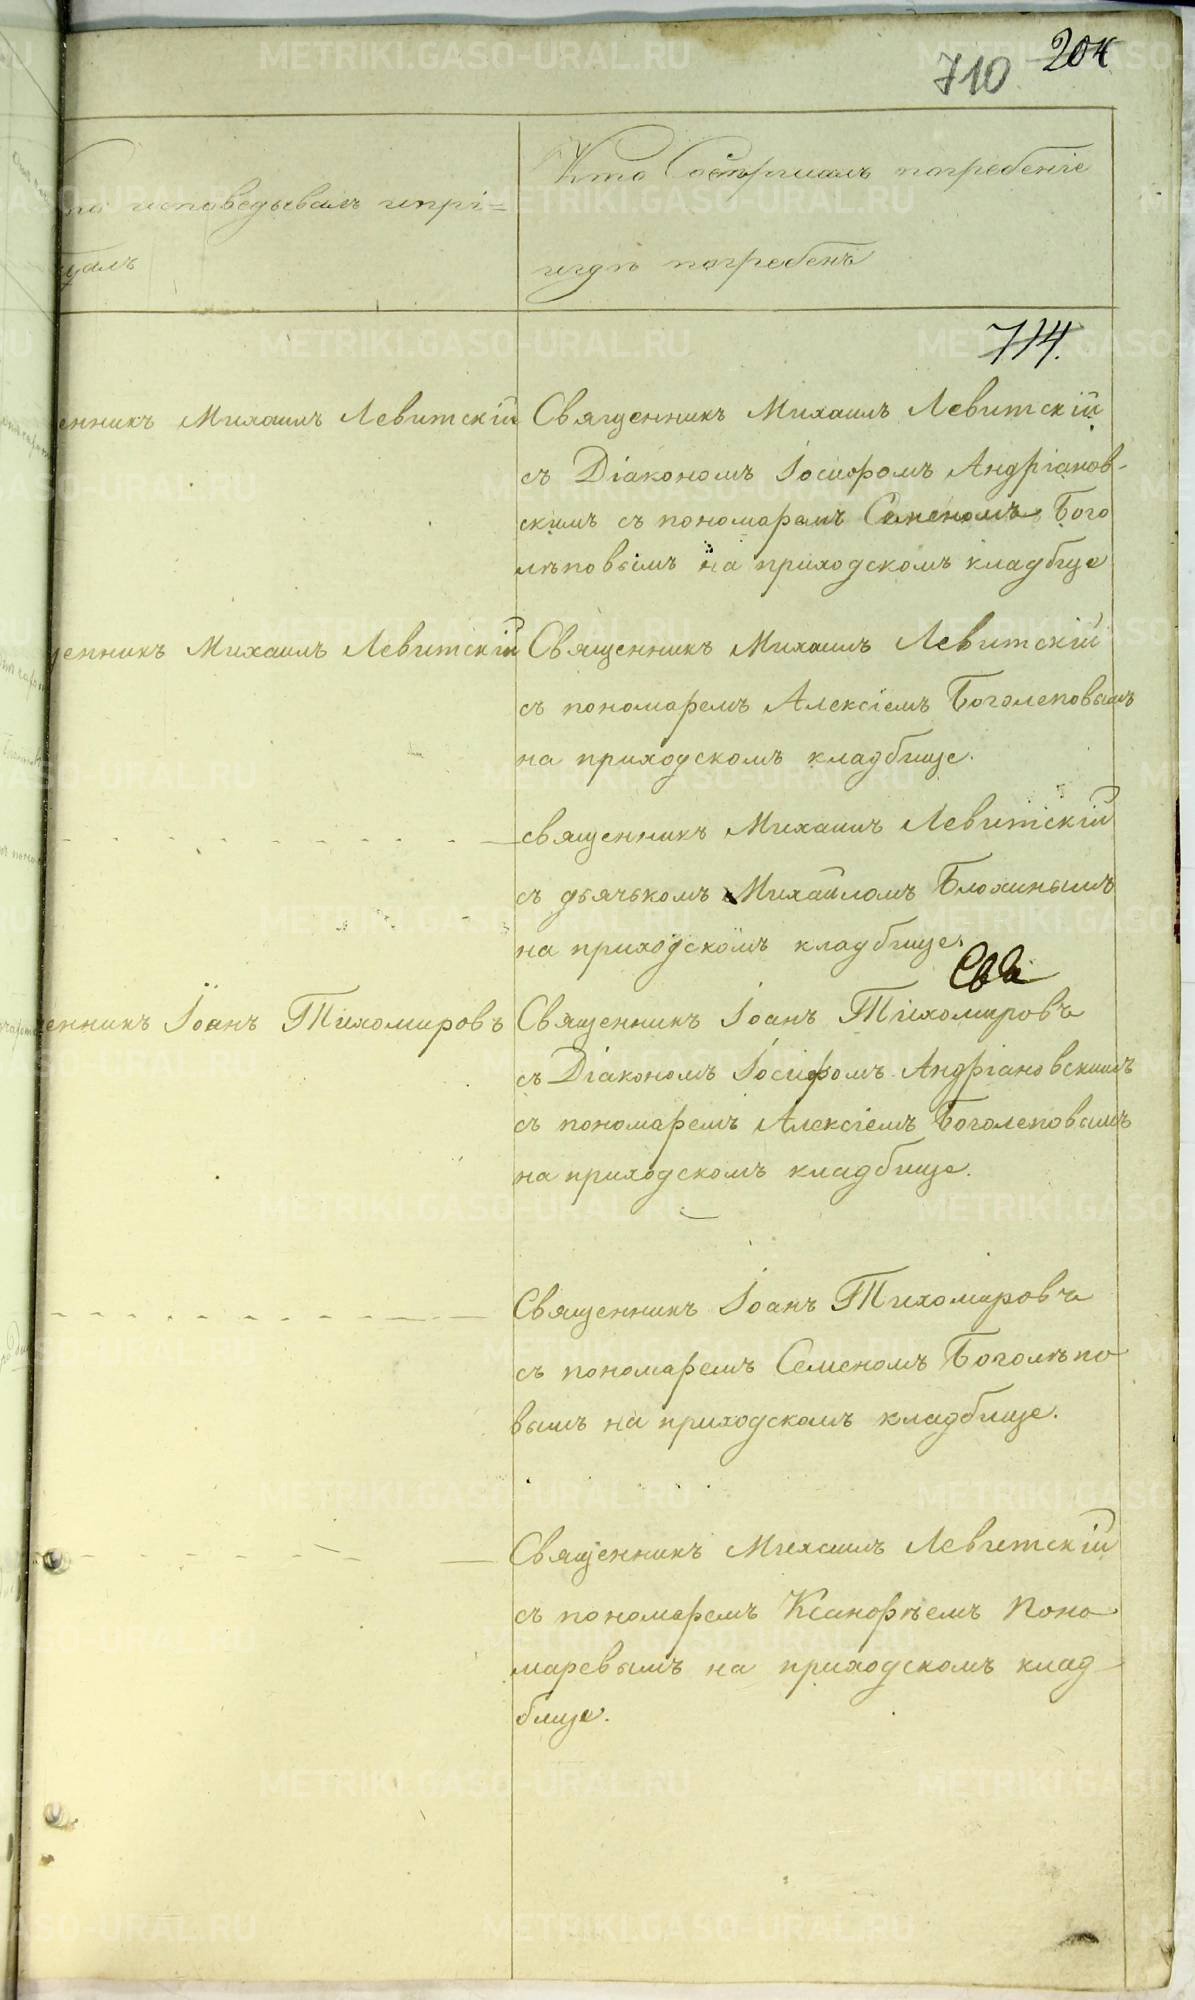 710 204
Кто Совершалъ погребенiе
то исповедывалъ и прi=
щалъ
и гдѣ погребенъ
714.
енникъ Михаилъ Левитскiй
Священникъ Михаилъ Левитскiй
съ Дiакономъ Iосифомъ Андрiанов-
скимъ съ пономаремъ Семеномъ Бого
лѣповымъ на приходскомъ кладбище
щенникъ Михаилъ Левитскiй
Священникъ Михаилъ Левитскiй
съ пономаремъ Алексiемъ Боголеповымъ
на приходскомъ кладбище.
священникъ Михаилъ Левитскiй
съ дьячькомъ Михайломъ Блохинымъ
на приходскомъ кладбище.
енникъ Iоанъ Тихомировъ
Священникъ Iоанъ Тихомировъ
съ Дiакономъ Iосифомъ Андрiановскимъ
съ пономаремъ Алексiемъ Боголеповымъ
на приходскомъ кладбище.
Священникъ Iоанъ Тихомировъ
съ пономаремъ Семеномъ Боголѣпо
вымъ на приходскомъ кладбище.
Священникъ Михаилъ Левитскiй
съ пономаремъ Ксанофѣемъ Поно
маревымъ на приходскомъ клад
бище.